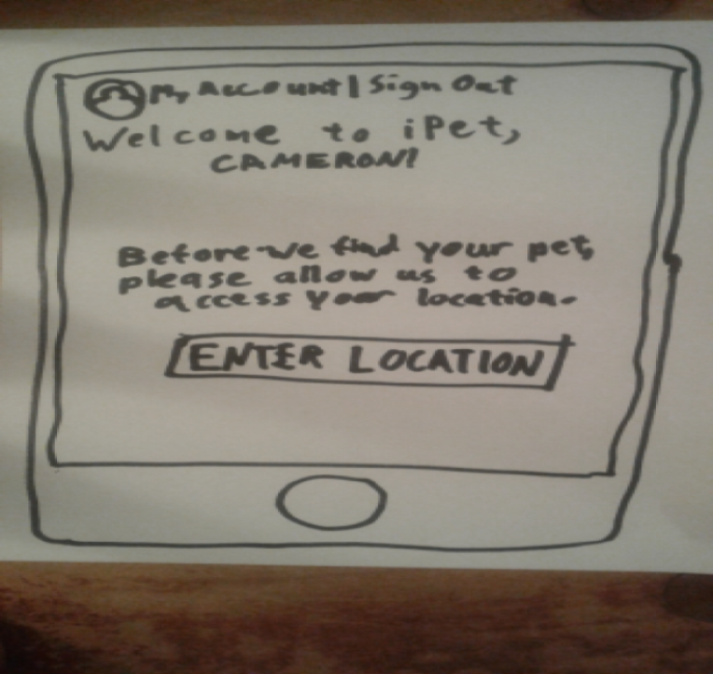 My Account | Sign Out
Welcome to iPet,
CAMERON!
Before we find your pet,
please allow us to
access your location.
ENTER LOCATION